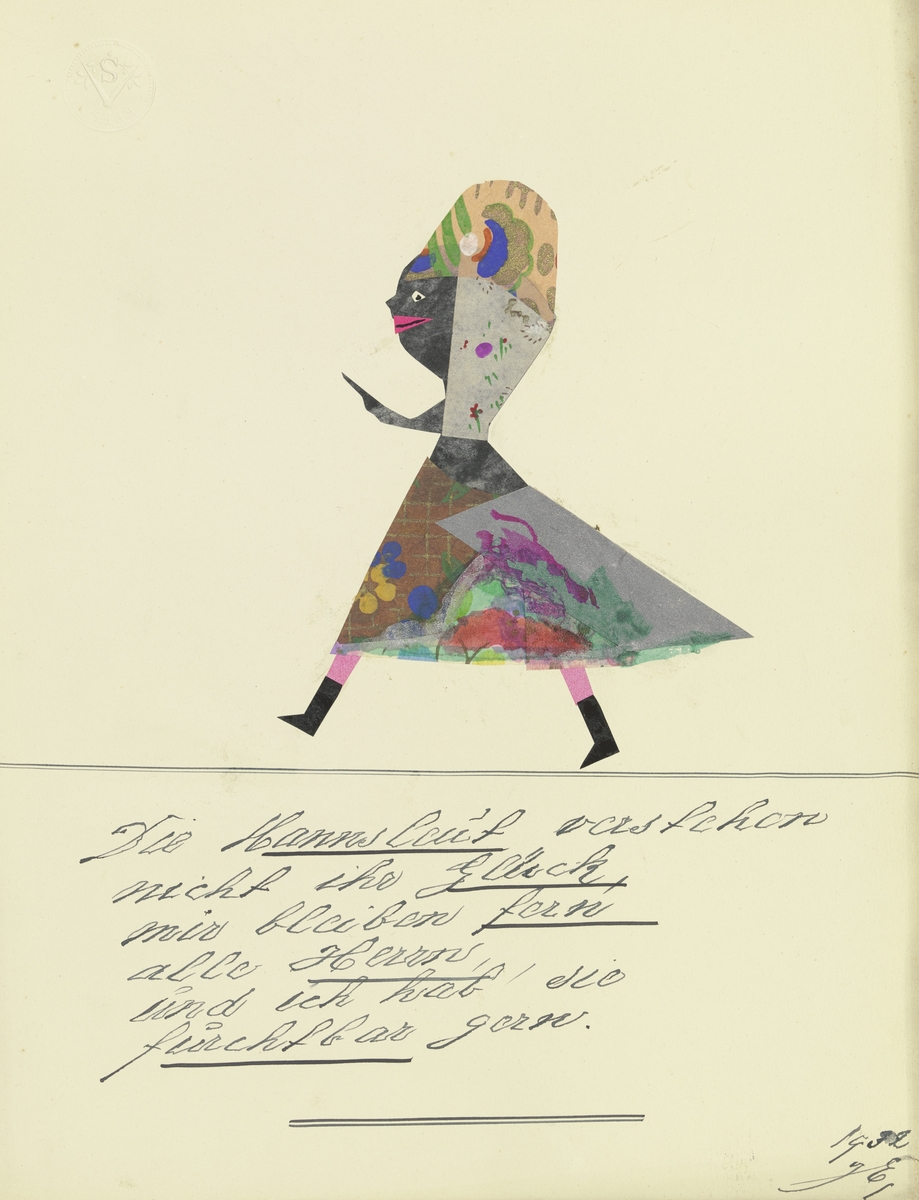 VS
Die Hannsleut verstehen
nicht ihr Glück,
mir bleiben fern
alle Herrn,
und ich hab' sie
furchtbar gern.
1932